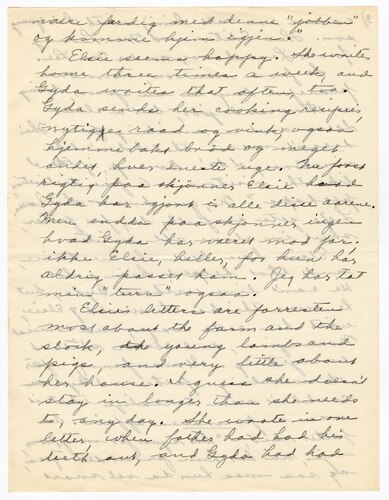 være færdig med denne "jobben"
og komme hjem igjen."
Elsie seems happy. She writes
home three times a week, and
Gyda writes that often, too.
Gyda sends her cooking recipies,
nyttige raad og vink, ogsaa
hjemme bakt brød og meget
andet, hver eneste uge. Nu først
rigtig paa skjønner Elsie hvad
Gyda har gjort i alle disse aarene.
Men endda paaskjønner ingen
hvad Gyda har været mod far.
ikke Elsie, heller, for hun har
aldrig passet ham. Jeg har tat
min "turn" ogsaa.
Elsies letters are forresten
most about the farm and the
stock, the young lambs and
pigs, and very little about
her house. I guess she doesn't
stay in longer than she needs
to, any day. She wrote in one
letter, when father had had his
teeth out, and Gyda had had